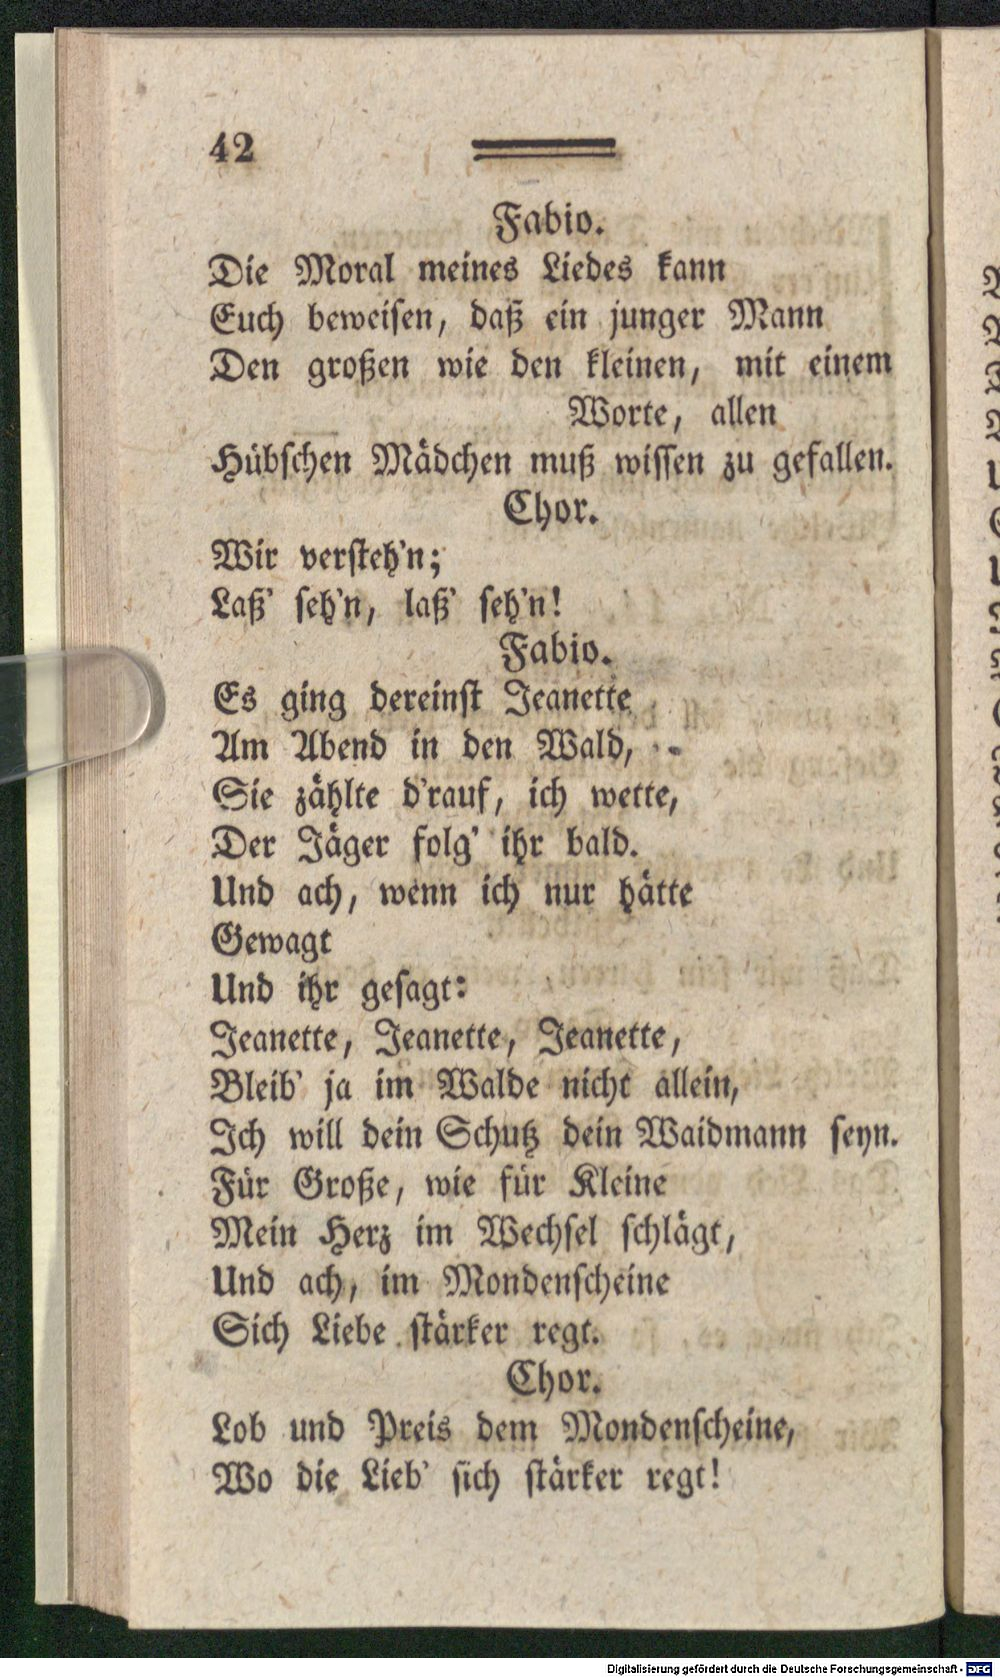 42
Fabio.
Die Moral meines Liedes kann
Euch beweisen, daß ein junger Mann
Den großen wie den kleinen, mit einem
Worte, allen
Hübschen Mädchen muß wissen zu gefallen.
Chor.
Wir versteh'n;
Laß' seh'n, laß' seh'n!
Fabio.
Es ging dereinst Jeanette
Am Abend in den Wald,
Sie zählte d'rauf, ich wette,
Der Jäger folg' ihr bald.
Und ach, wenn ich nur hätte
Gewagt
Und ihr gesagt:
Jeanette, Jeanette, Jeanette,
Bleib' ja im Walde nicht allein,
Ich will dein Schutz dein Waidmann seyn.
Für Große, wie für Kleine
Mein Herz im Wechsel schlägt,
Und ach, im Mondenscheine
Sich Liebe stärker regt.
Chor.
Lob und Preis dem Mondenscheine,
Wo die Lieb' sich stärker regt!
Digitalisierung gefördert durch die Deutsche Forschungsgemeinschaft - DFG